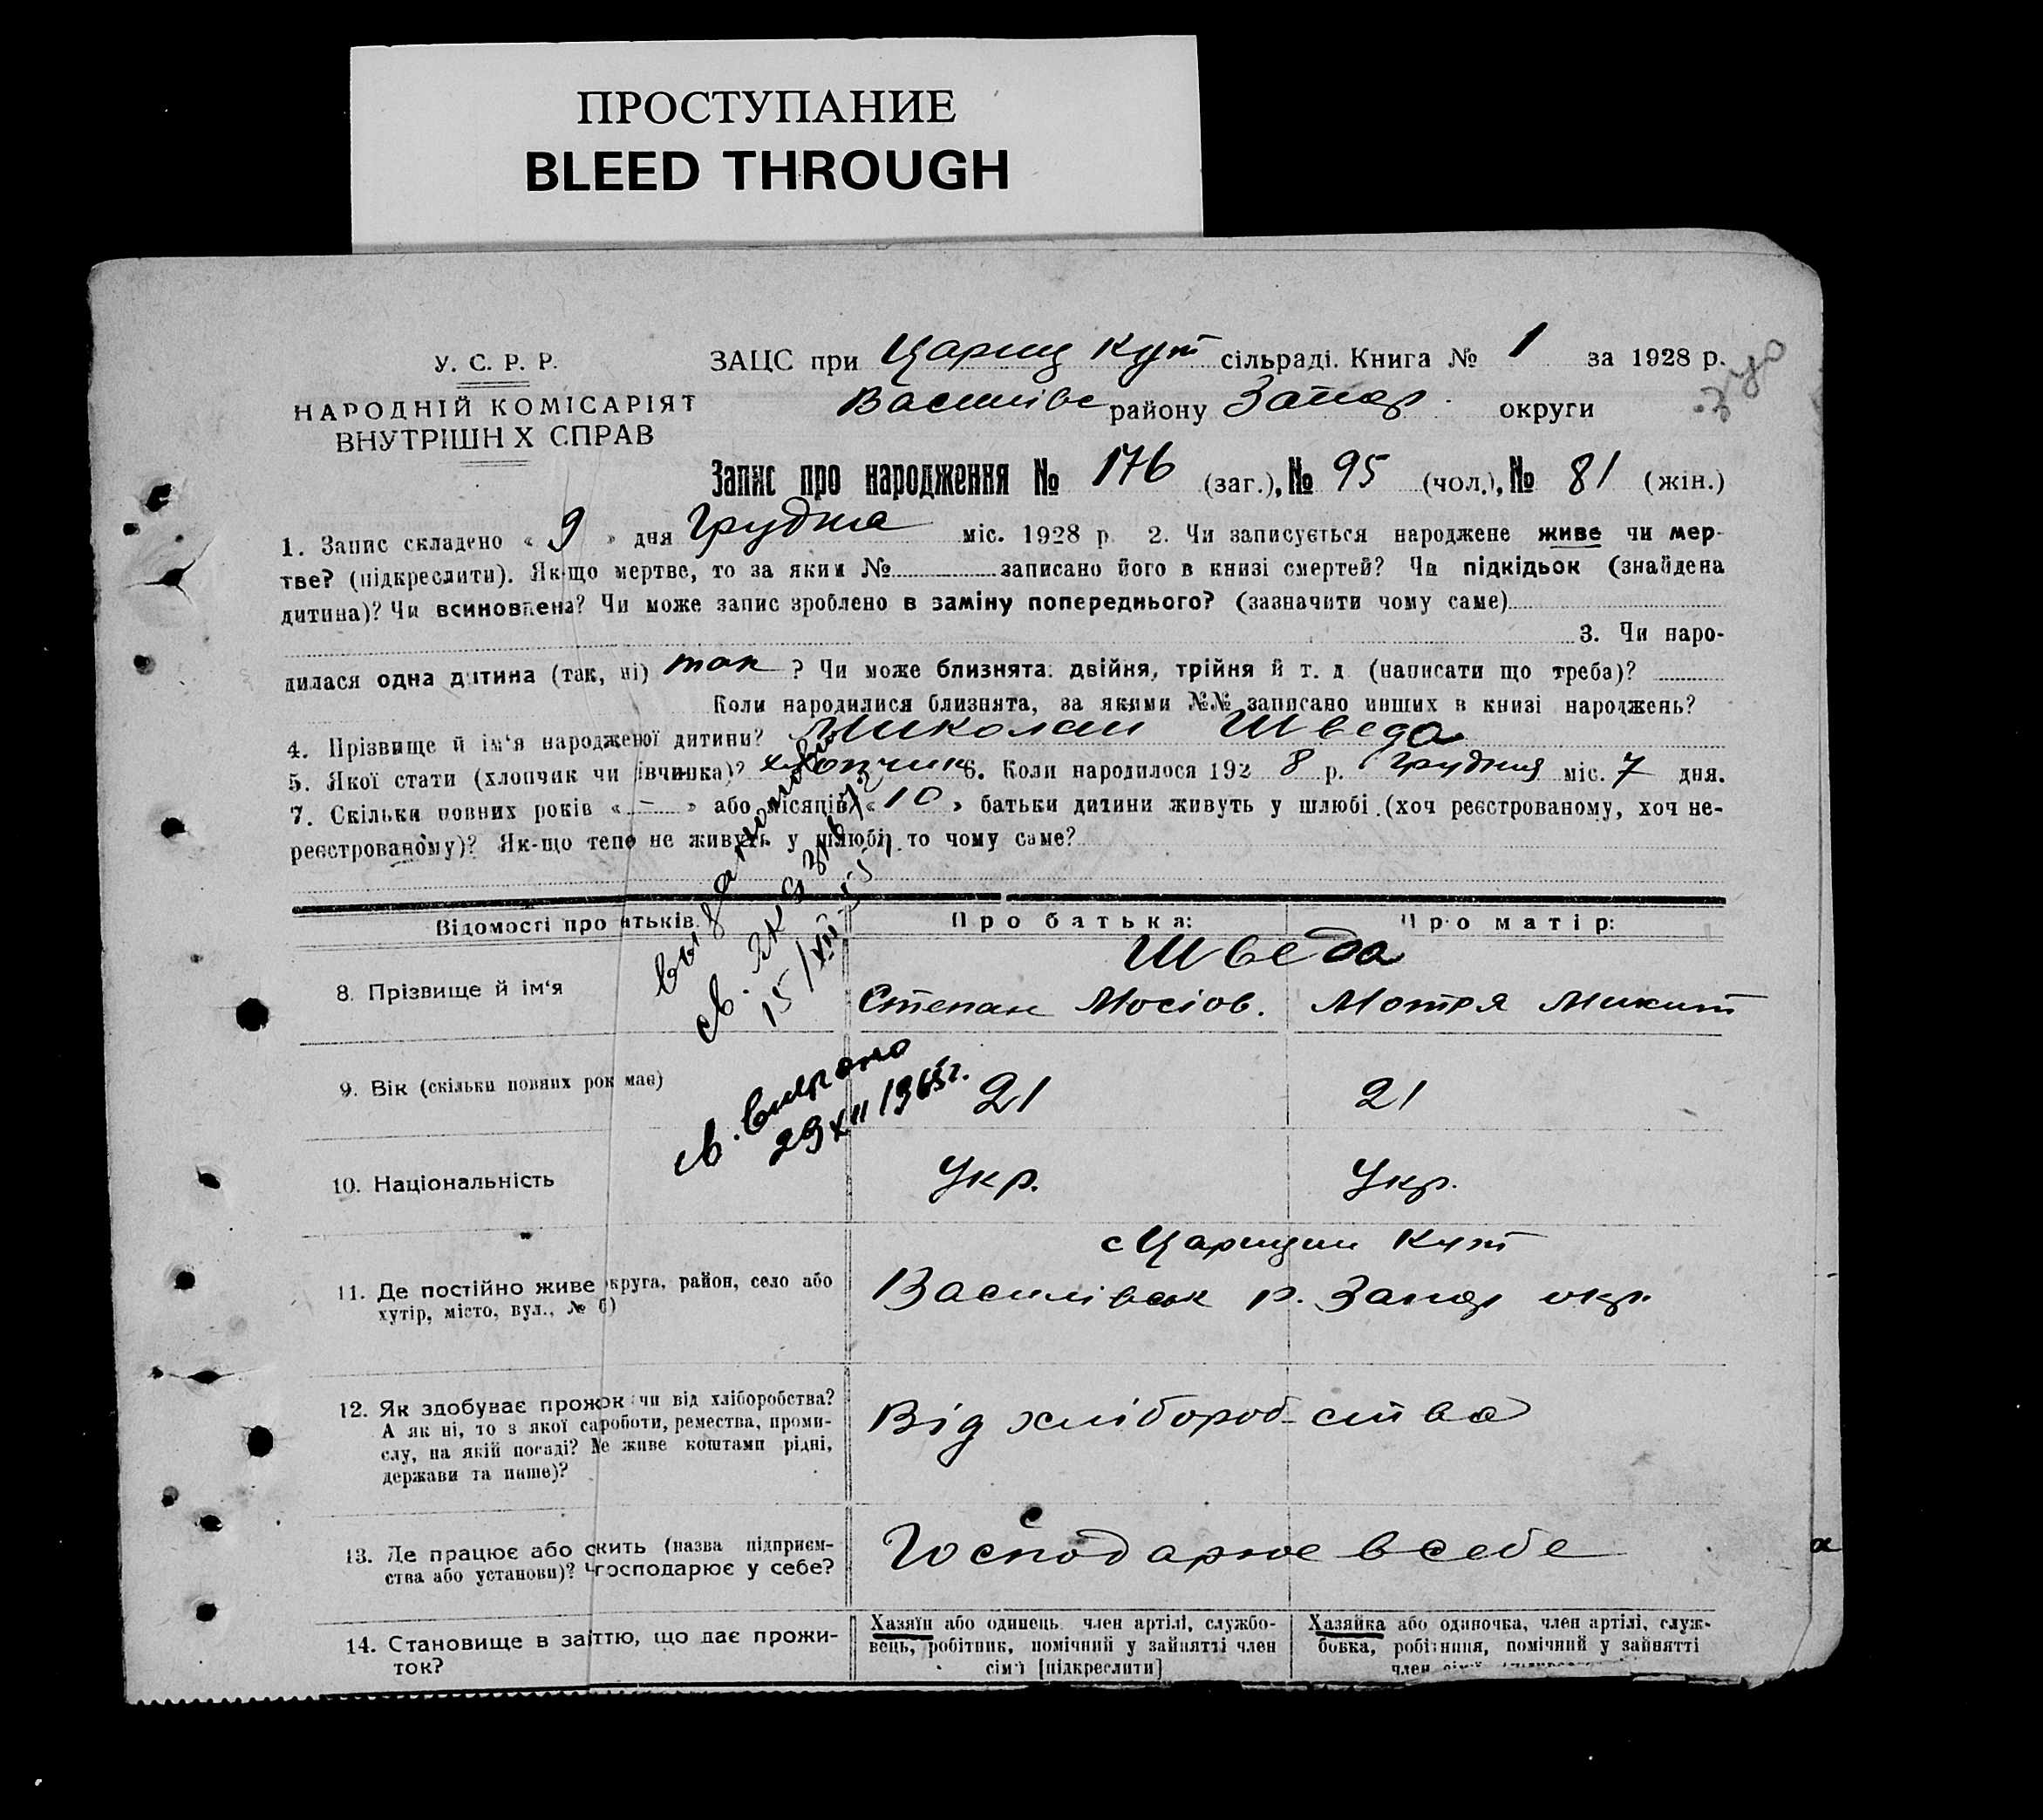 ПРОСТУПАНИЕ
BLEED THROUGH
У. С. Р. Р.
НАРОДНІЙ КОМІСАРІЯТ
ВНУТРІШН Х СПРАВ
ЗАЦС при Цариц Кут сільраді. Книга № 1 за 1928 р.
Василівс району Запор. округи
Запис про народження № 176 (заг.), № 95 (чол.), № 81 (жін.)
1. Запис складено « 9 » дня Грудня міс. 1928 р 2. Чи записується народжене живе чи мер-
тве? (підкреслити). Як-що мертве, то за яким № записано його в книзі смертей? Чи підкідьок (знайдена
дитина)? Чи всиновлена? Чи може запис зроблено в заміну попереднього? (зазначити чому саме)
3. Чи наро-
дилася одна дитина (так, ні) так ? Чи може близнята: двійня, трійня й т. д (написати що треба)?
Коли народилися близнята, за якими №№ записано инших в книзі народжень?
4. Прізвище й ім'я народженої дитини? Миколай Шведа
5. Якої стати (хлопчик чи івчинка)? хлопчик 6. Коли народилося 192 8 р. Грудня міс. 7 дня.
7. Скільки повних років « – » або місяців « 10 » батьки дитини живуть у шлюбі (хоч реєстрованому, хоч не-
реєстрованому)? Як-що тепе не живуть у шлюбі, то чому саме?
Відомості про атьків Про батька: Про матір:
Шведа
8. Прізвище й ім'я Степан Мосіов. Мотря Микит
св.
15/XII
9. Вік (скільки повних рок має) 21 21
св. вибрано
29 XII 1965г.
10. Національність Укр. Укр.
с Царицин Кут
11. Де постійно живе округа, район, село або
хутір, місто, вул., № б)
Василівськ р. Запор окр.
12. Як здобуває прожок чи від хліборобства?
А як ні, то з якої са роботи, ремества, проми-
слу, на якій посаді? Не живе коштами рідні,
держави та инше)?
Від хліборобства
13. Де працює або жить (назва підприєм-
ства або установи)? Ч господарює у себе?
Господарює в себе
14. Становище в заттю, що дає прожи-
ток?
Хазяїн або одинець член артілі, службо-
вець, робітник, помічний у зайнятті член
сім'ї [підкреслити]
Хазяйка або одиночка, член артілі, служ-
бовка, робітниця, помічний у зайнятті
член